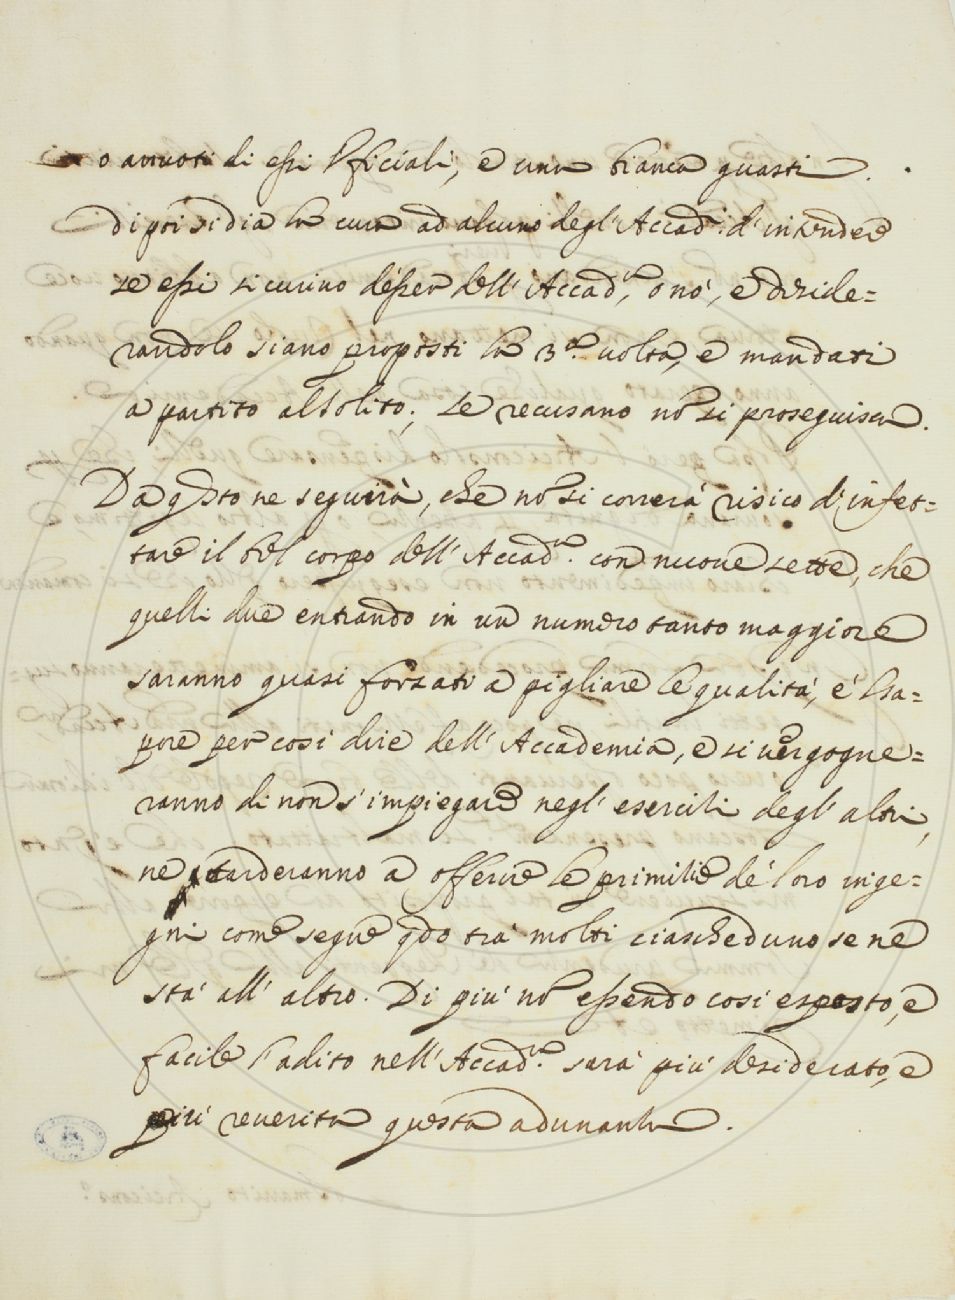 o annoti di essi Vficiali, e una bianca guasti.
Di poi si dia la cura ad alcuno degl'Accad.ⁱ d'intendere
se essi si curino d'esser dell'Accad.ᵃ, o nò, e deside=
randolo siano proposti la 3ᵃ uolta, e mandati
a partito al solito; se recusano nõ si proseguisca.
Da q̃sto ne seguirà, che nõ si correrà risico d'infet=
tare il bel corpo dell'Accad.ᵃ con nuoue sette, che
quelli due entrando in un numero tanto maggiore
saranno quasi forzati a pigliare le qualità, e 'l sa=
pore per così dire dell'Accademia, e si uergogne=
ranno di non s'impiegare negl'esercitj degl'altri,
ne tarderanno a offerire le primitie de' loro inge=
gni come segue q̃do trà molti ciascheduno se ne
stà all'altro. Di più nõ essendo così esposto, e
facile l'adito nell'Accad.ᵃ sarà più desiderato, e
più reuerita questa adunanza.